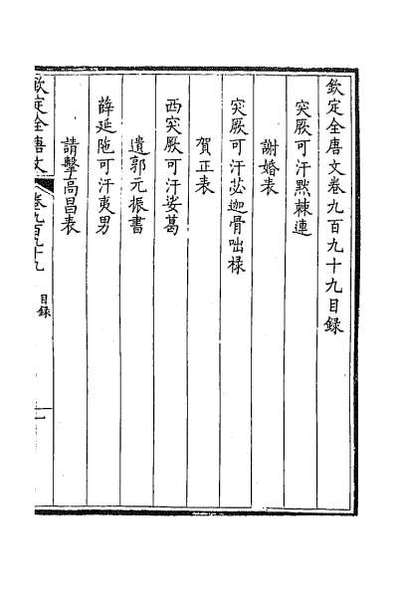 欽定全唐文卷九百九十九目録
突厥可汗黙棘連
謝婚表
突厥可汗苾迦骨咄禄
賀正表
西突厥可汗娑葛
遺郭元振書
薛延陁可汗夷男
請擊高昌表
欽定全唐文 卷九百九十九 目録 一